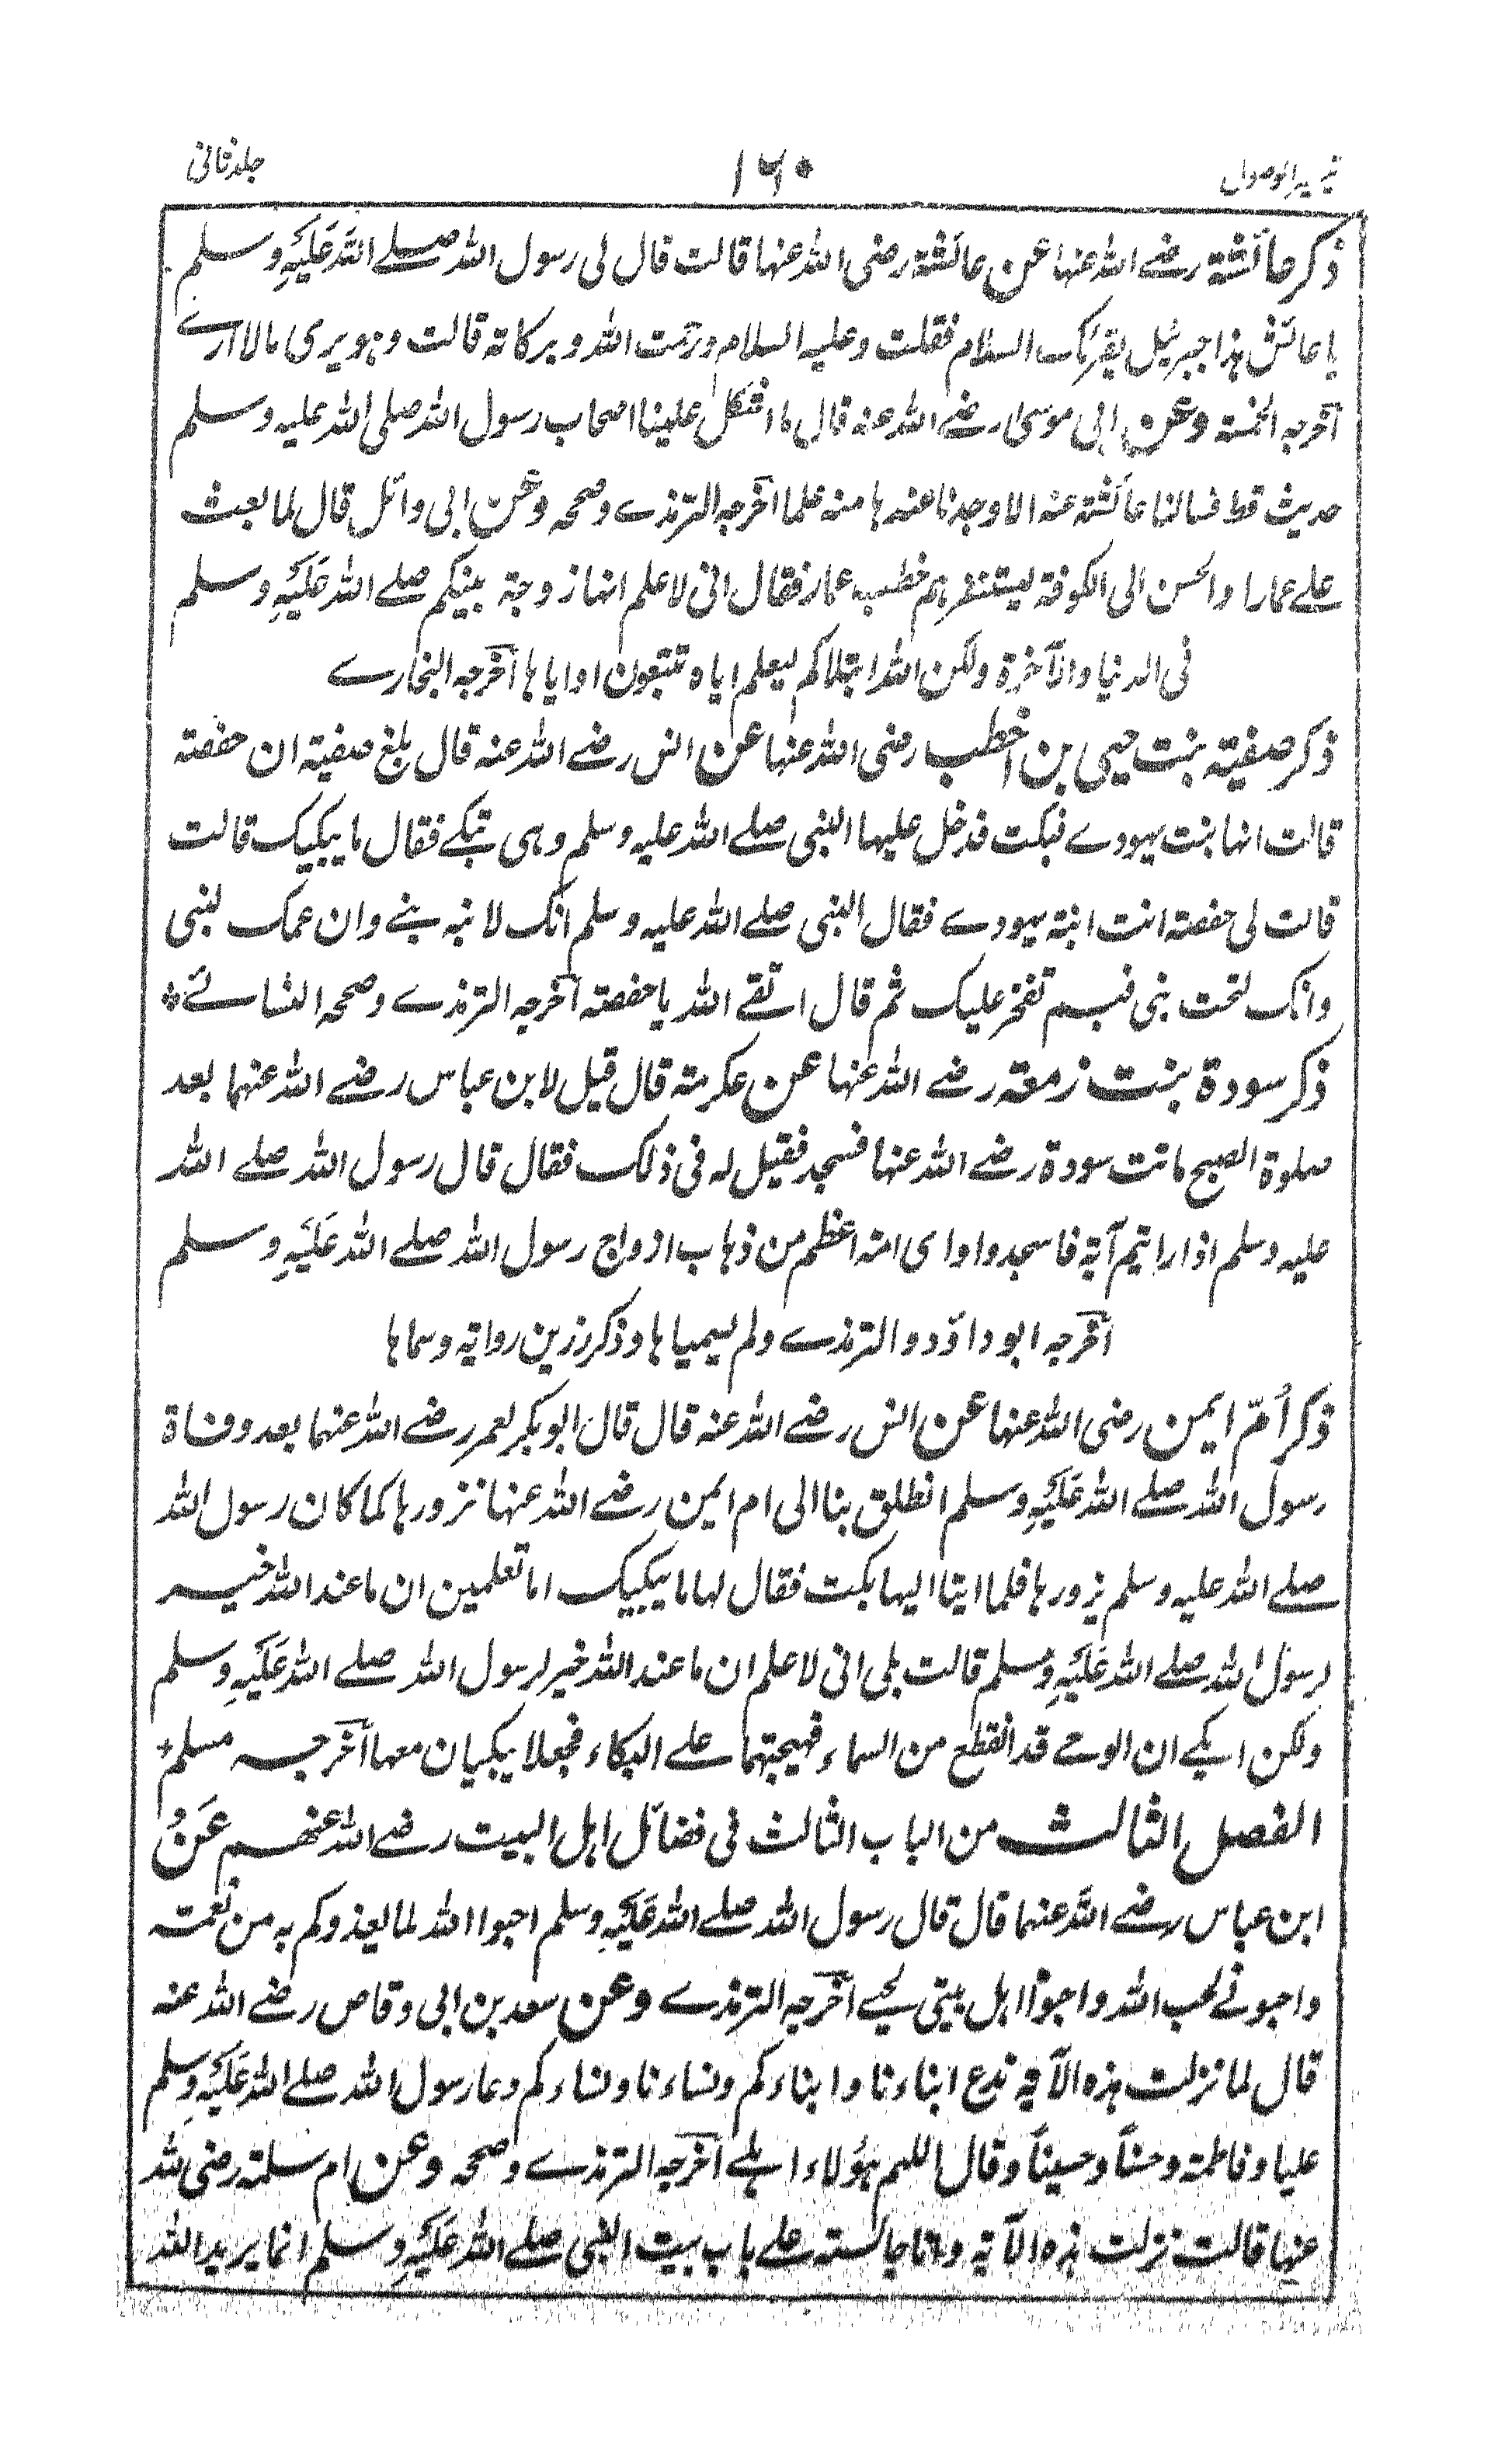 تيسير الوصول ١٦٠ جلد ثانی
ذكر عائشة رضے اللہ عنہا عن عائشة رضی اللہ عنہا قالت قال لی رسول اللہ صلے اللہ عَلَيْہِ وسلم
يا عائش ہذا جبرئيل يقرئک السلام فقلت وعليہ السلام ورحمت اللہ وبركاتہ قالت وہو يری مالا ارے
اخرجہ الخمسۃ وعن ابی موسیٰ رضے اللہ عنہ قال ما اشكل علينا اصحاب رسول اللہ صلی اللہ عليہ وسلم
حديث قط فسالنا عائشة عنہ الا وجدنا عندہا منہ علما اخرجہ الترمذے وصححہ وعن ابی وائل قال لما بعث
علے عمارا والحسن الی الكوفة ليستنفرہم خطب عمار فقال انی لاعلم انہا زوجة نبيكم صلے اللہ عَلَيْہِ وسلم
فی الدنيا والآخرة ولكن اللہ ابتلاكم ليعلم اياہ تتبعون او اياہا اخرجہ البخارے
ذكر صفيۃ بنت حيی بن اخطب رضی اللہ عنہا عن انس رضے اللہ عنہ قال بلغ صفيۃ ان حفصۃ
قالت انہا بنت يہودے فبكت فدخل عليہا النبی صلے اللہ عليہ وسلم وہی تبكے فقال ما يبكيک قالت
قالت لی حفصۃ انت ابنۃ يہودے فقال النبی صلے اللہ عليہ وسلم انک لابنۃ نبے وان عمک لنبی
وانک لتحت نبی فبم تفخر عليک ثم قال اتقے اللہ يا حفصۃ اخرجہ الترمذے وصححہ النسائے ٭
ذكر سودة بنت زمعۃ رضے اللہ عنہا عن عكرمۃ قال قيل لابن عباس رضے اللہ عنہما بعد
صلوة الصبح ماتت سودة رضے اللہ عنہا فسجد فقيل لہ فی ذلک فقال قال رسول اللہ صلے اللہ
عليہ وسلم اذا رايتم آيۃ فاسجدوا وای امۃ اعظم من ذہاب ازواج رسول اللہ صلے اللہ عَلَيْہِ وسلم
اخرجہ ابو داؤد والترمذے ولم يسمياہا وذكر رزين رواتہ وسماہا
ذكر اُمّ ايمن رضی اللہ عنہا عن انس رضے اللہ عنہ قال قال ابو بكر لعمر رضے اللہ عنہما بعد وفاة
رسول اللہ صلے اللہ عَلَيْہِ وسلم انطلق بنا الی ام ايمن رضے اللہ عنہا نزورہا كما كان رسول اللہ
صلے اللہ عليہ وسلم يزورہا فلما اتينا اليہا بكت فقال لہا ما يبكيک اما تعلمين ان ما عند اللہ خير
لرسول اللہ صلے اللہ عَلَيْہِ وسلم قالت بلی انی لاعلم ان ما عند اللہ خير لرسول اللہ صلے اللہ عَلَيْہِ وسلم
ولكن ابكے ان الوحے قد انقطع من السماء فہيجتہما علے البكاء فجعلا يبكيان معہا اخرجہ مسلم ٭
الفصل الثالث من الباب الثالث فی فضائل اہل البيت رضے اللہ عنہم عَنْ
ابن عباس رضے اللہ عنہما قال قال رسول اللہ صلے اللہ عَلَيْہِ وسلم احبوا اللہ لما يغذوكم بہ من نعمہ
واحبونے لحب اللہ واحبوا اہل بيتی لحبے اخرجہ الترمذے وعن سعد بن ابی وقاص رضے اللہ عنہ
قال لما نزلت ہذہ الآيۃ ندع ابناءنا وابناءكم ونساءنا ونساءكم دعا رسول اللہ صلے اللہ عَلَيْہِ وسلم
عليا وفاطمۃ وحسناً وحسيناً وقال اللہم ہؤلاء اہلے اخرجہ الترمذے وصححہ وعن ام سلمۃ رضی اللہ
عنہا قالت نزلت ہذہ الآيۃ وانا جالستہ علے باب بيت النبی صلے اللہ عَلَيْہِ وسلم انما يريد اللہ